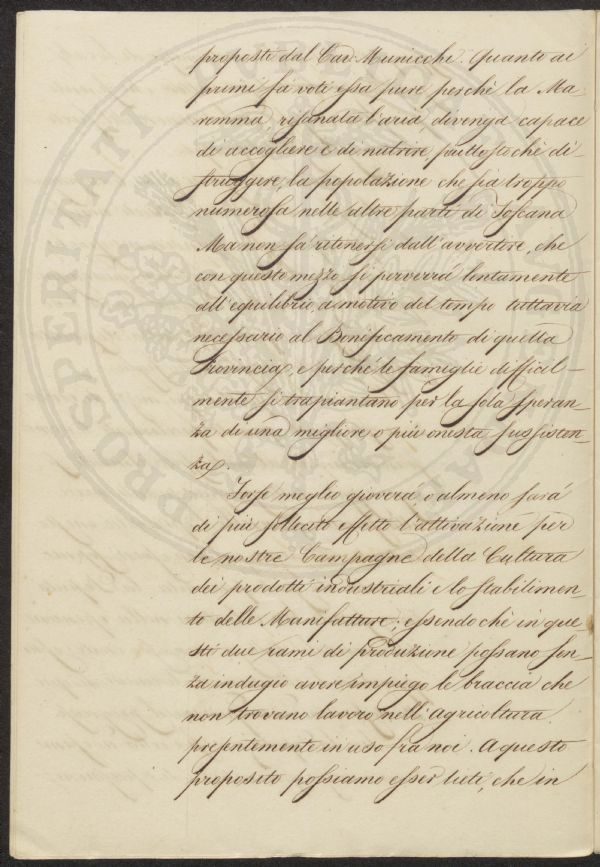 proposti dal Cav. Municchi. Quanto ai
primi fa voti essa pure perchè la Ma-
remma, risanata l'aria divenga capace
di accogliere e di nutrire piuttosto chè di-
struggere, la popolazione che sia troppo
numerosa nelle altre parti di Toscana
Ma non sa ritenersi dall'avvertire, che
con questo mezzo si perverrà lentamente
all'equilibrio, a motivo del tempo tuttavia
necessario al Bonificamento di quella
Provincia, e perchè le famiglie difficil-
mente si trapiantano per la sola speran-
za di una migliore o più onesta sussisten-
za.
Forse meglio gioverà o almeno sarà
di più sollecito effetto l'attivazione per
le nostre Campagne della Cultura
dei prodotti industriali e lo stabilimen-
to delle Manifatture; essendochè in que-
sti due rami di produzione possano sen-
za indugio avere impiego le braccia che
non trovano lavoro nell'agricoltura
presentemente in uso fra noi. A questo
proposito possiamo esser lieti, che in
PROSPERITATI PUBLICAE